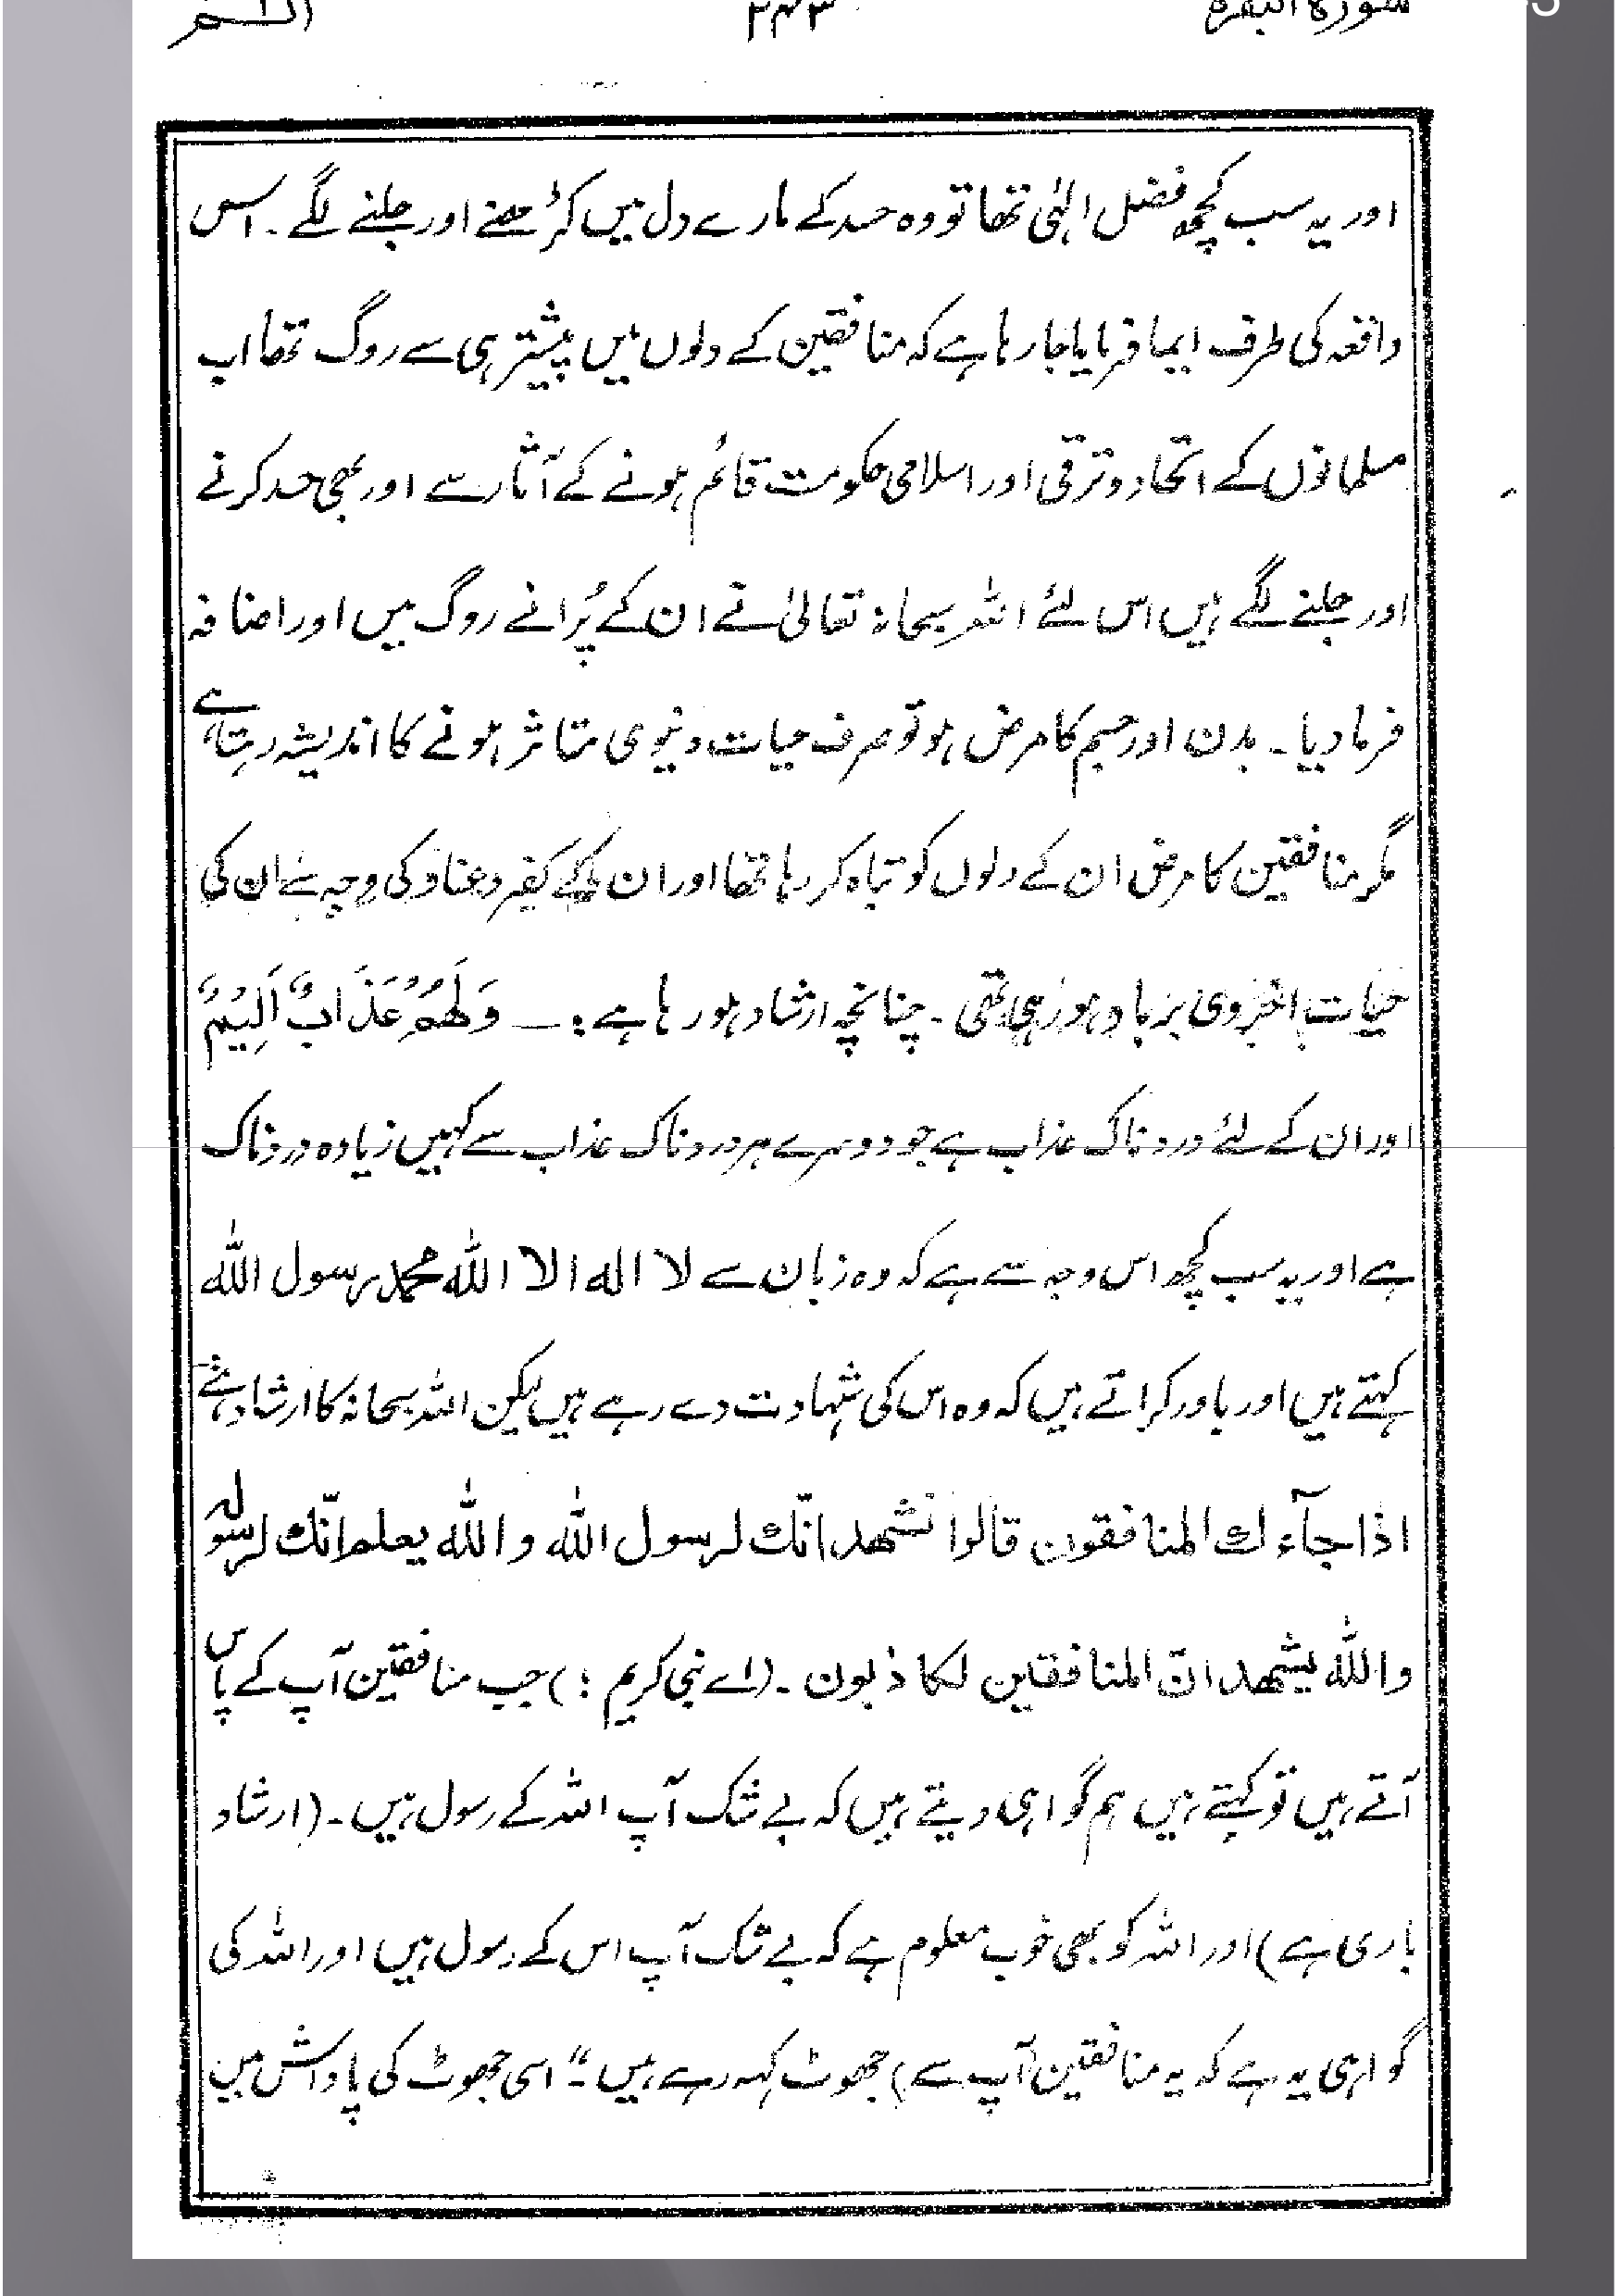 سورة البقرة ۲۴۳ الٓمّٓ
اور یہ سب کچھ فضل الہٰی تھا تو وہ حسد کے مارے دل میں کُڑھنے اور جلنے لگے۔ اس
واقعہ کی طرف ایما فرمایا جا رہا ہے کہ منافقین کے دلوں میں پیشتر ہی سے روگ تھا اب
مسلمانوں کے اتحاد و ترقی اور اسلامی حکومت قائم ہونے کے آثار سے اور بھی حسد کرنے
اور جلنے لگے ہیں اس لئے اللہ سبحانہٗ تعالیٰ نے ان کے پُرانے روگ میں اور اضافہ
فرما دیا۔ بدن اور جسم کا مرض ہو تو صرف حیات دنیوی متاثر ہونے کا اندیشہ رہتا ہے،
مگر منافقین کا مرض ان کے دلوں کو تباہ کر رہا تھا اور ان کے کفر و عناد کی وجہ سے ان کی
حیات اخروی برباد ہو رہی تھی۔ چنانچہ ارشاد ہو رہا ہے:۔ وَلَهُمْ عَذَابٌ اَلِيْمٌ
اور ان کے لئے دردناک عذاب ہے جو دوسرے ہر دردناک عذاب سے کہیں زیادہ دردناک
ہے اور یہ سب کچھ اس وجہ سے ہے کہ وہ زبان سے لا اله الا الله محمد رسول الله
کہتے ہیں اور باور کراتے ہیں کہ وہ اس کی شہادت دے رہے ہیں لیکن اللہ سبحانہٗ کا ارشاد ہے:
اذا جآءك المنافقون قالوا نشهد انّك لرسول الله والله يعلم انّك لرسوله
والله يشهد انّ المنافقين لكاذبون۔ (اے نبی کریم!) جب منافقین آپ کے پاس
آتے ہیں تو کہتے ہیں ہم گواہی دیتے ہیں کہ بے شک آپ اللہ کے رسول ہیں۔ (ارشاد
باری ہے) اور اللہ کو بھی خوب معلوم ہے کہ بے شک آپ اس کے رسول ہیں اور اللہ کی
گواہی یہ ہے کہ یہ منافقین (آپ سے) جھوٹ کہہ رہے ہیں۔" اسی جھوٹ کی پاداش میں